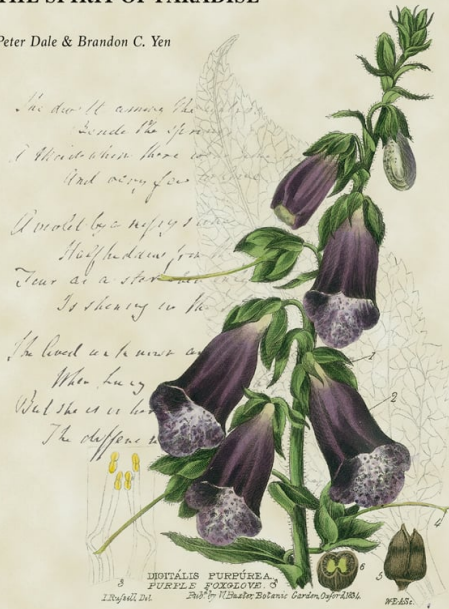 THE SPIRIT OF PARADISE
Peter Dale & Brandon C. Yen
She dwelt among the
A Maid whom there
And very few
A violet by a mossy s
Half hidden from
Fair as a star
Is shining in th
She lived unknown an
When Lucy
But she is in her
The differen
1
2
4
6
5
3
DIGITÁLIS PURPÚREA.
PURPLE FOXGLOVE. ♂
I. Russell, Del.
Pub.d by W. Baxter, Botanic Garden, Oxford, 1834.
W.E.& Sc.